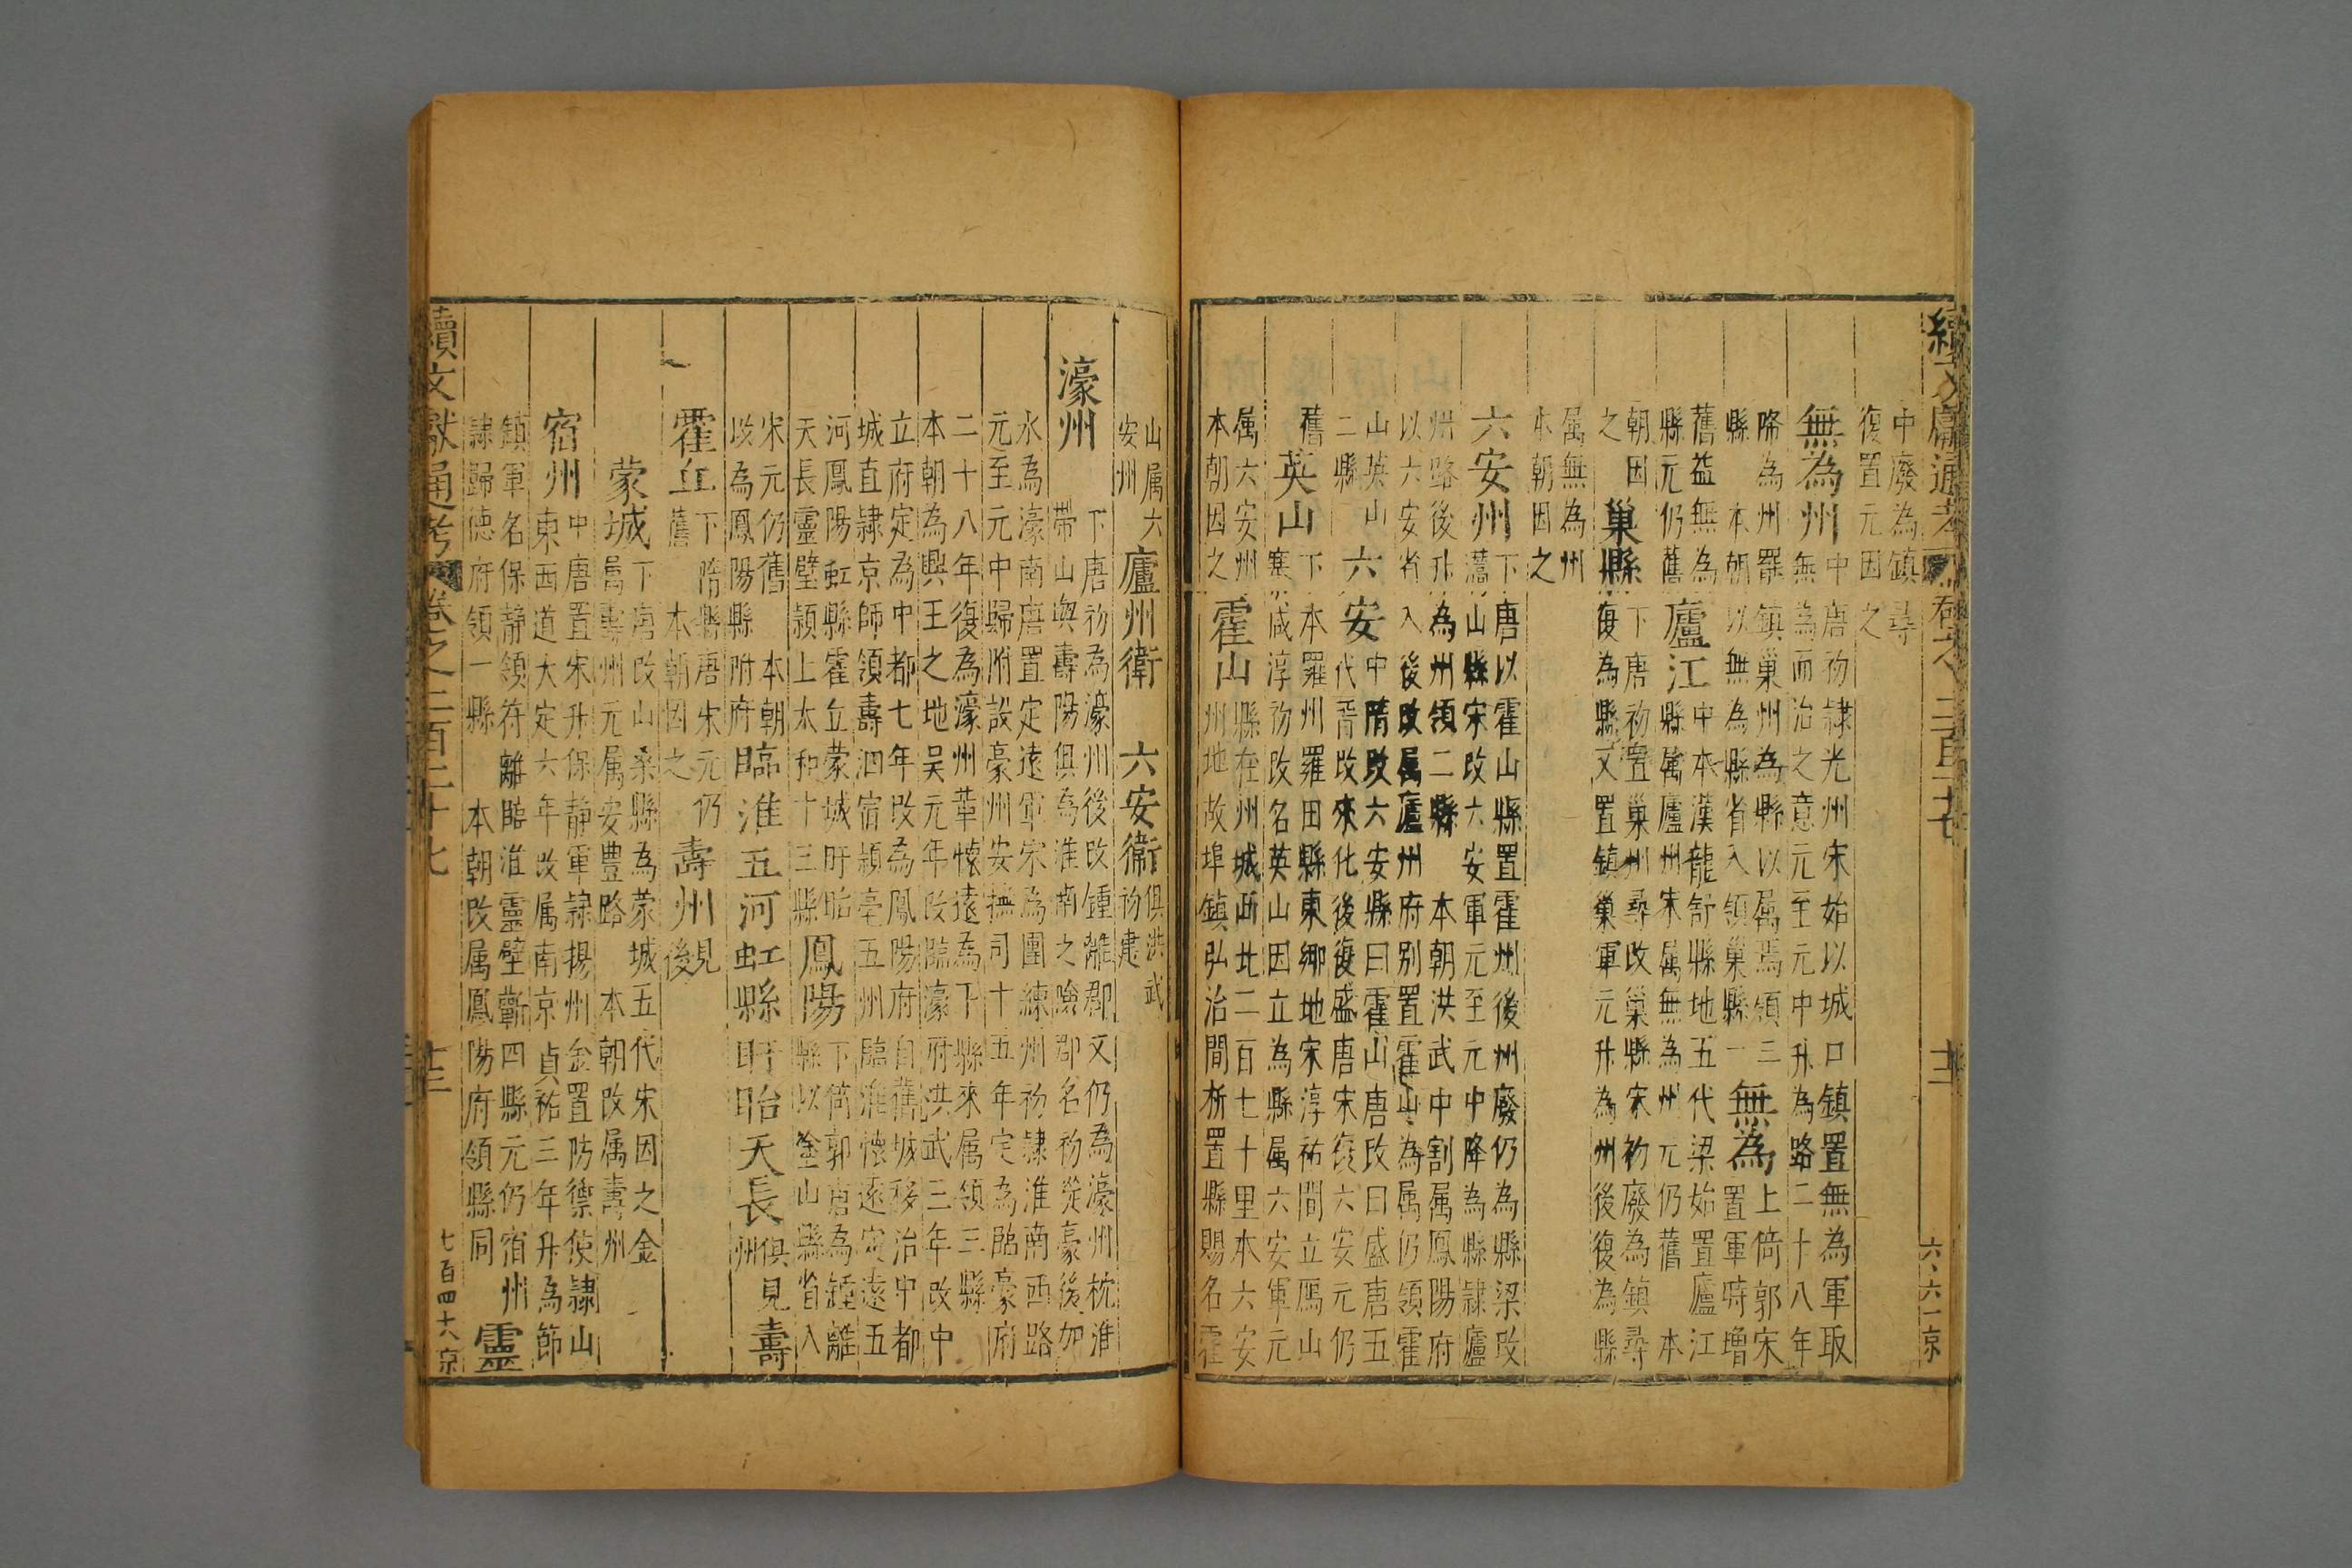 中廢為鎮尋
復置元因之
無為州
中唐初隷光州宋始以城口鎮置無為軍取
無為而治之意元至元中升為路二十八年
降為州罷鎮巢州為縣以属焉領三
縣 本朝以無為縣省入領巢縣一
無為
上倚郭宋
置軍時增
舊益無為
縣元仍舊
廬江
中本漢龍舒縣地五代梁始置廬江
縣属廬州宋属無為州元仍舊 本
朝因
之
巢縣
下唐初置巢州尋改巢縣宋初廢為鎮尋
復為縣又置鎮巢軍元升為州後復為縣
属無為州
本朝因之
六安州
下唐以霍山縣置霍州後州廢仍為縣梁改
灊山縣宋改六安軍元至元中降為縣隷廬
州路後升為州領二縣 本朝洪武中割属鳳陽府
以六安省入後改属廬州府別置霍山為属仍領霍
山英山
二縣
六安
中隋改六安縣曰霍山唐改曰盛唐五
代晉改來化後復盛唐宋復六安元仍
舊
英山
下本羅州羅田縣東鄉地宋淳祐間立鴈山
寨咸淳初改名英山因立為縣属六安軍元
属六安州
本朝因之
霍山
縣在州城西北二百七十里本六安
州地故埠鎮弘治間析置縣賜名霍
續文獻通考
卷之二百二十七
山属六
安州
廬州衛
六安衞
俱洪武
初建
濠州
下唐初為濠州後改鍾離郡又仍為濠州枕淮
帶山與壽陽俱為淮南之險郡名初從豪後加
水為濠南唐置定遠軍宋為團練州初隷淮南西路
元至元中歸附設濠州安撫司十五年定為臨濠府
二十八年復為濠州革懷遠為下縣來属領三縣
本朝為興王之地吳元年改臨濠府洪武三年改中
立府定為中都七年改為鳳陽府自舊城移治中都
城直隷京師領壽泗宿潁亳五州臨淮懷遠定遠五
河鳳陽虹縣霍丘蒙城盱眙
天長靈壁潁上太和十三縣
鳳陽
下倚郭唐為鍾離
縣以塗山縣省入
宋元仍舊 本朝
以為鳳陽縣附府
臨淮五河虹縣盱眙天長
俱見壽
州
霍丘
下隋縣唐宋元仍
舊 本朝因之
壽州
見
後
蒙城
下唐改山桑縣為蒙城五代宋因之金
属壽州元属安豊路 本朝改属壽州
宿州
中唐置宋升保静軍隷揚州金置防禦使隷山
東西道大定六年改属南京貞祐三年升為節
鎮軍名保静領符離臨淮靈壁蘄四縣元仍宿州
隷歸徳府領一縣 本朝改属鳳陽府領縣同
靈
續文獻通考
卷之二百二十七
七百四十八京